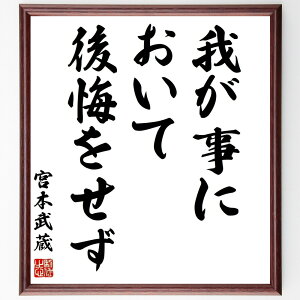 我が事に
おいて
後悔をせず
宮本武蔵